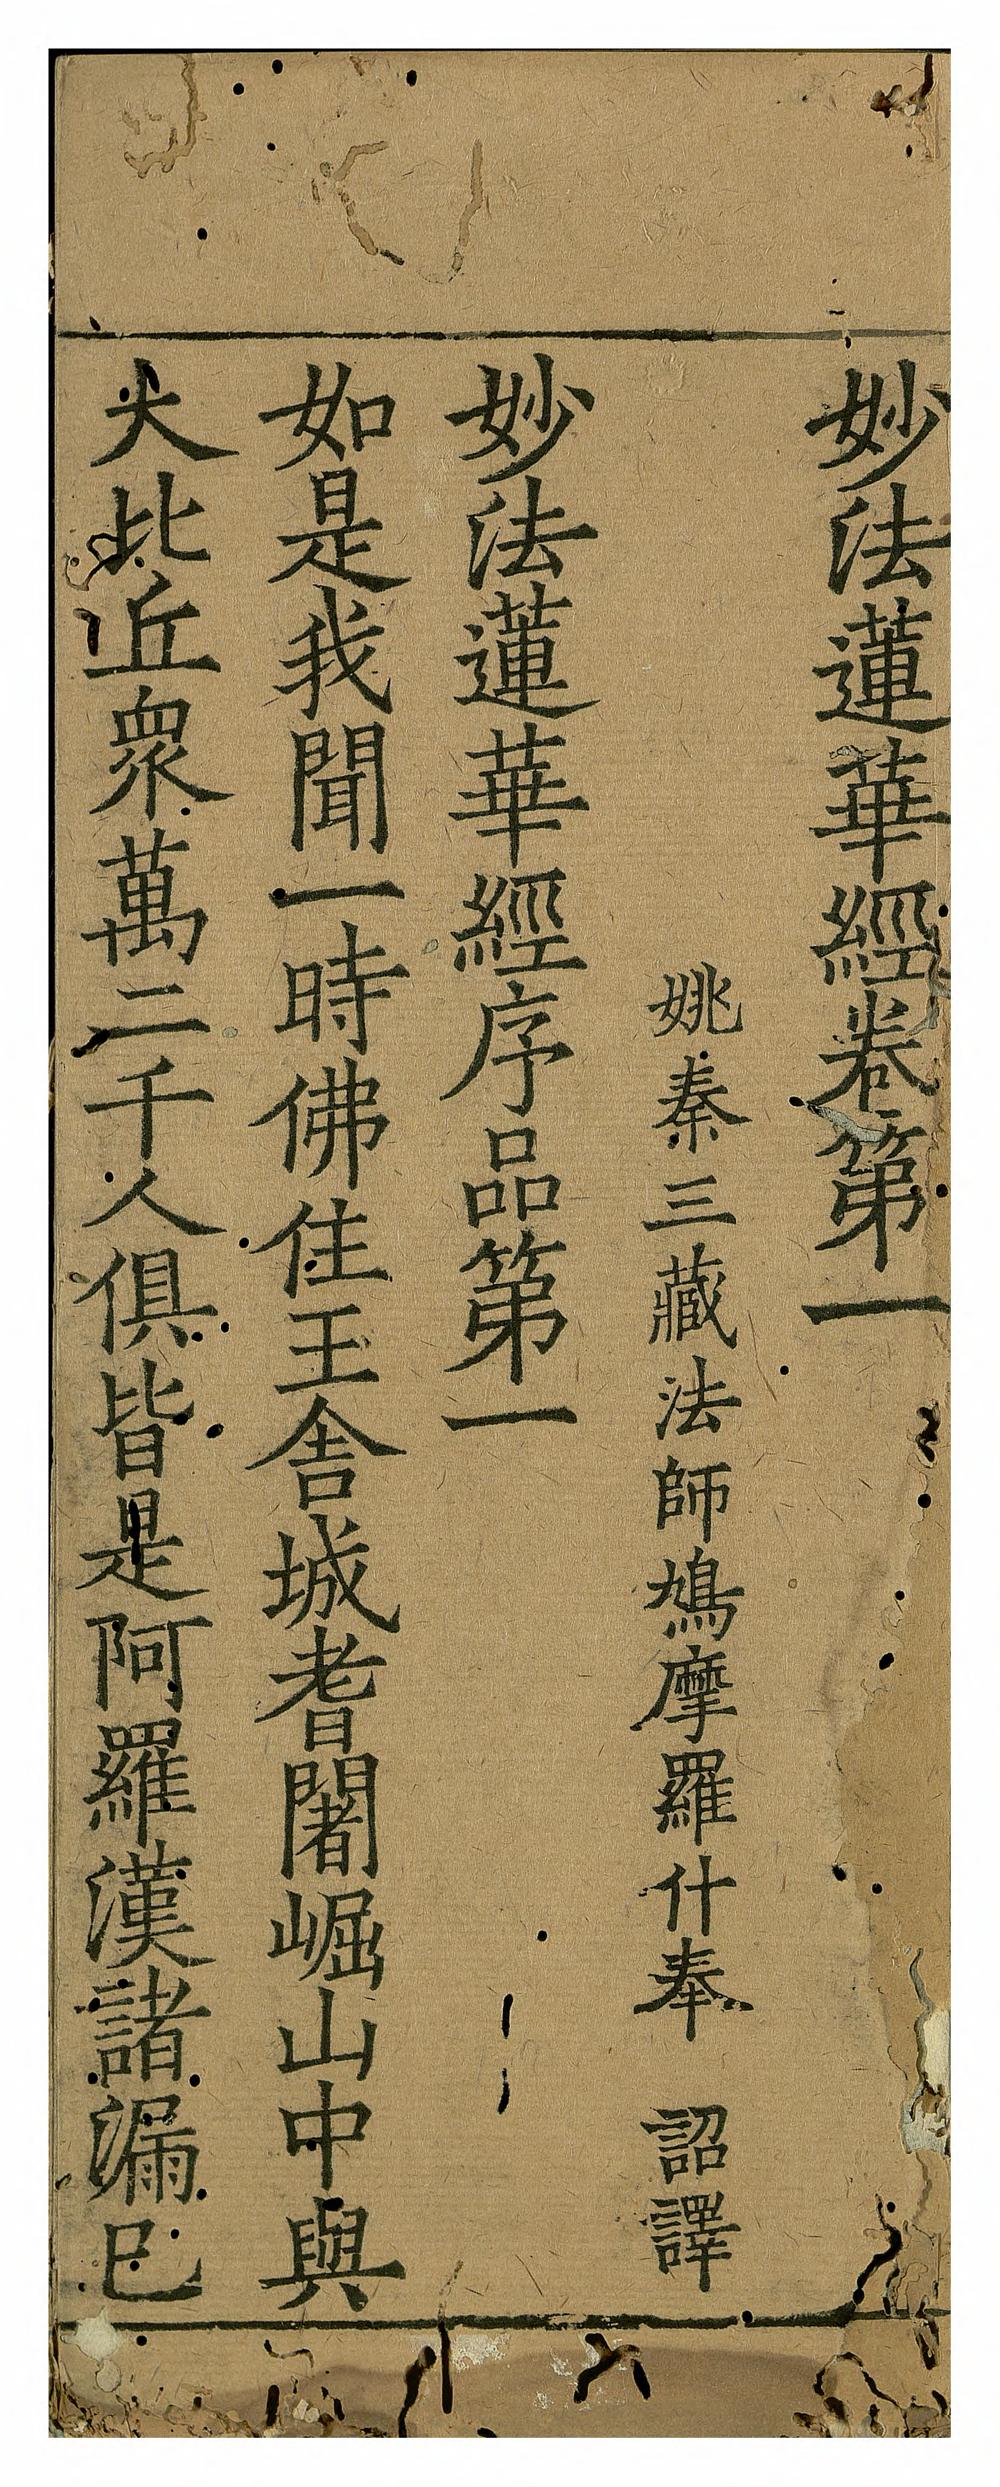 妙法蓮華經卷第一
姚秦三藏法師鳩摩羅什奉　詔譯
妙法蓮華經序品第一
如是我聞一時佛住王舍城耆闍崛山中與
大比丘衆萬二千人俱皆是阿羅漢諸漏已